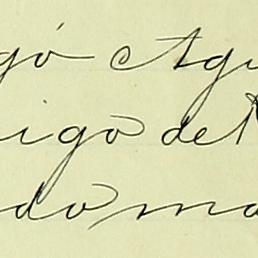 gó Agu
igo del
do ma